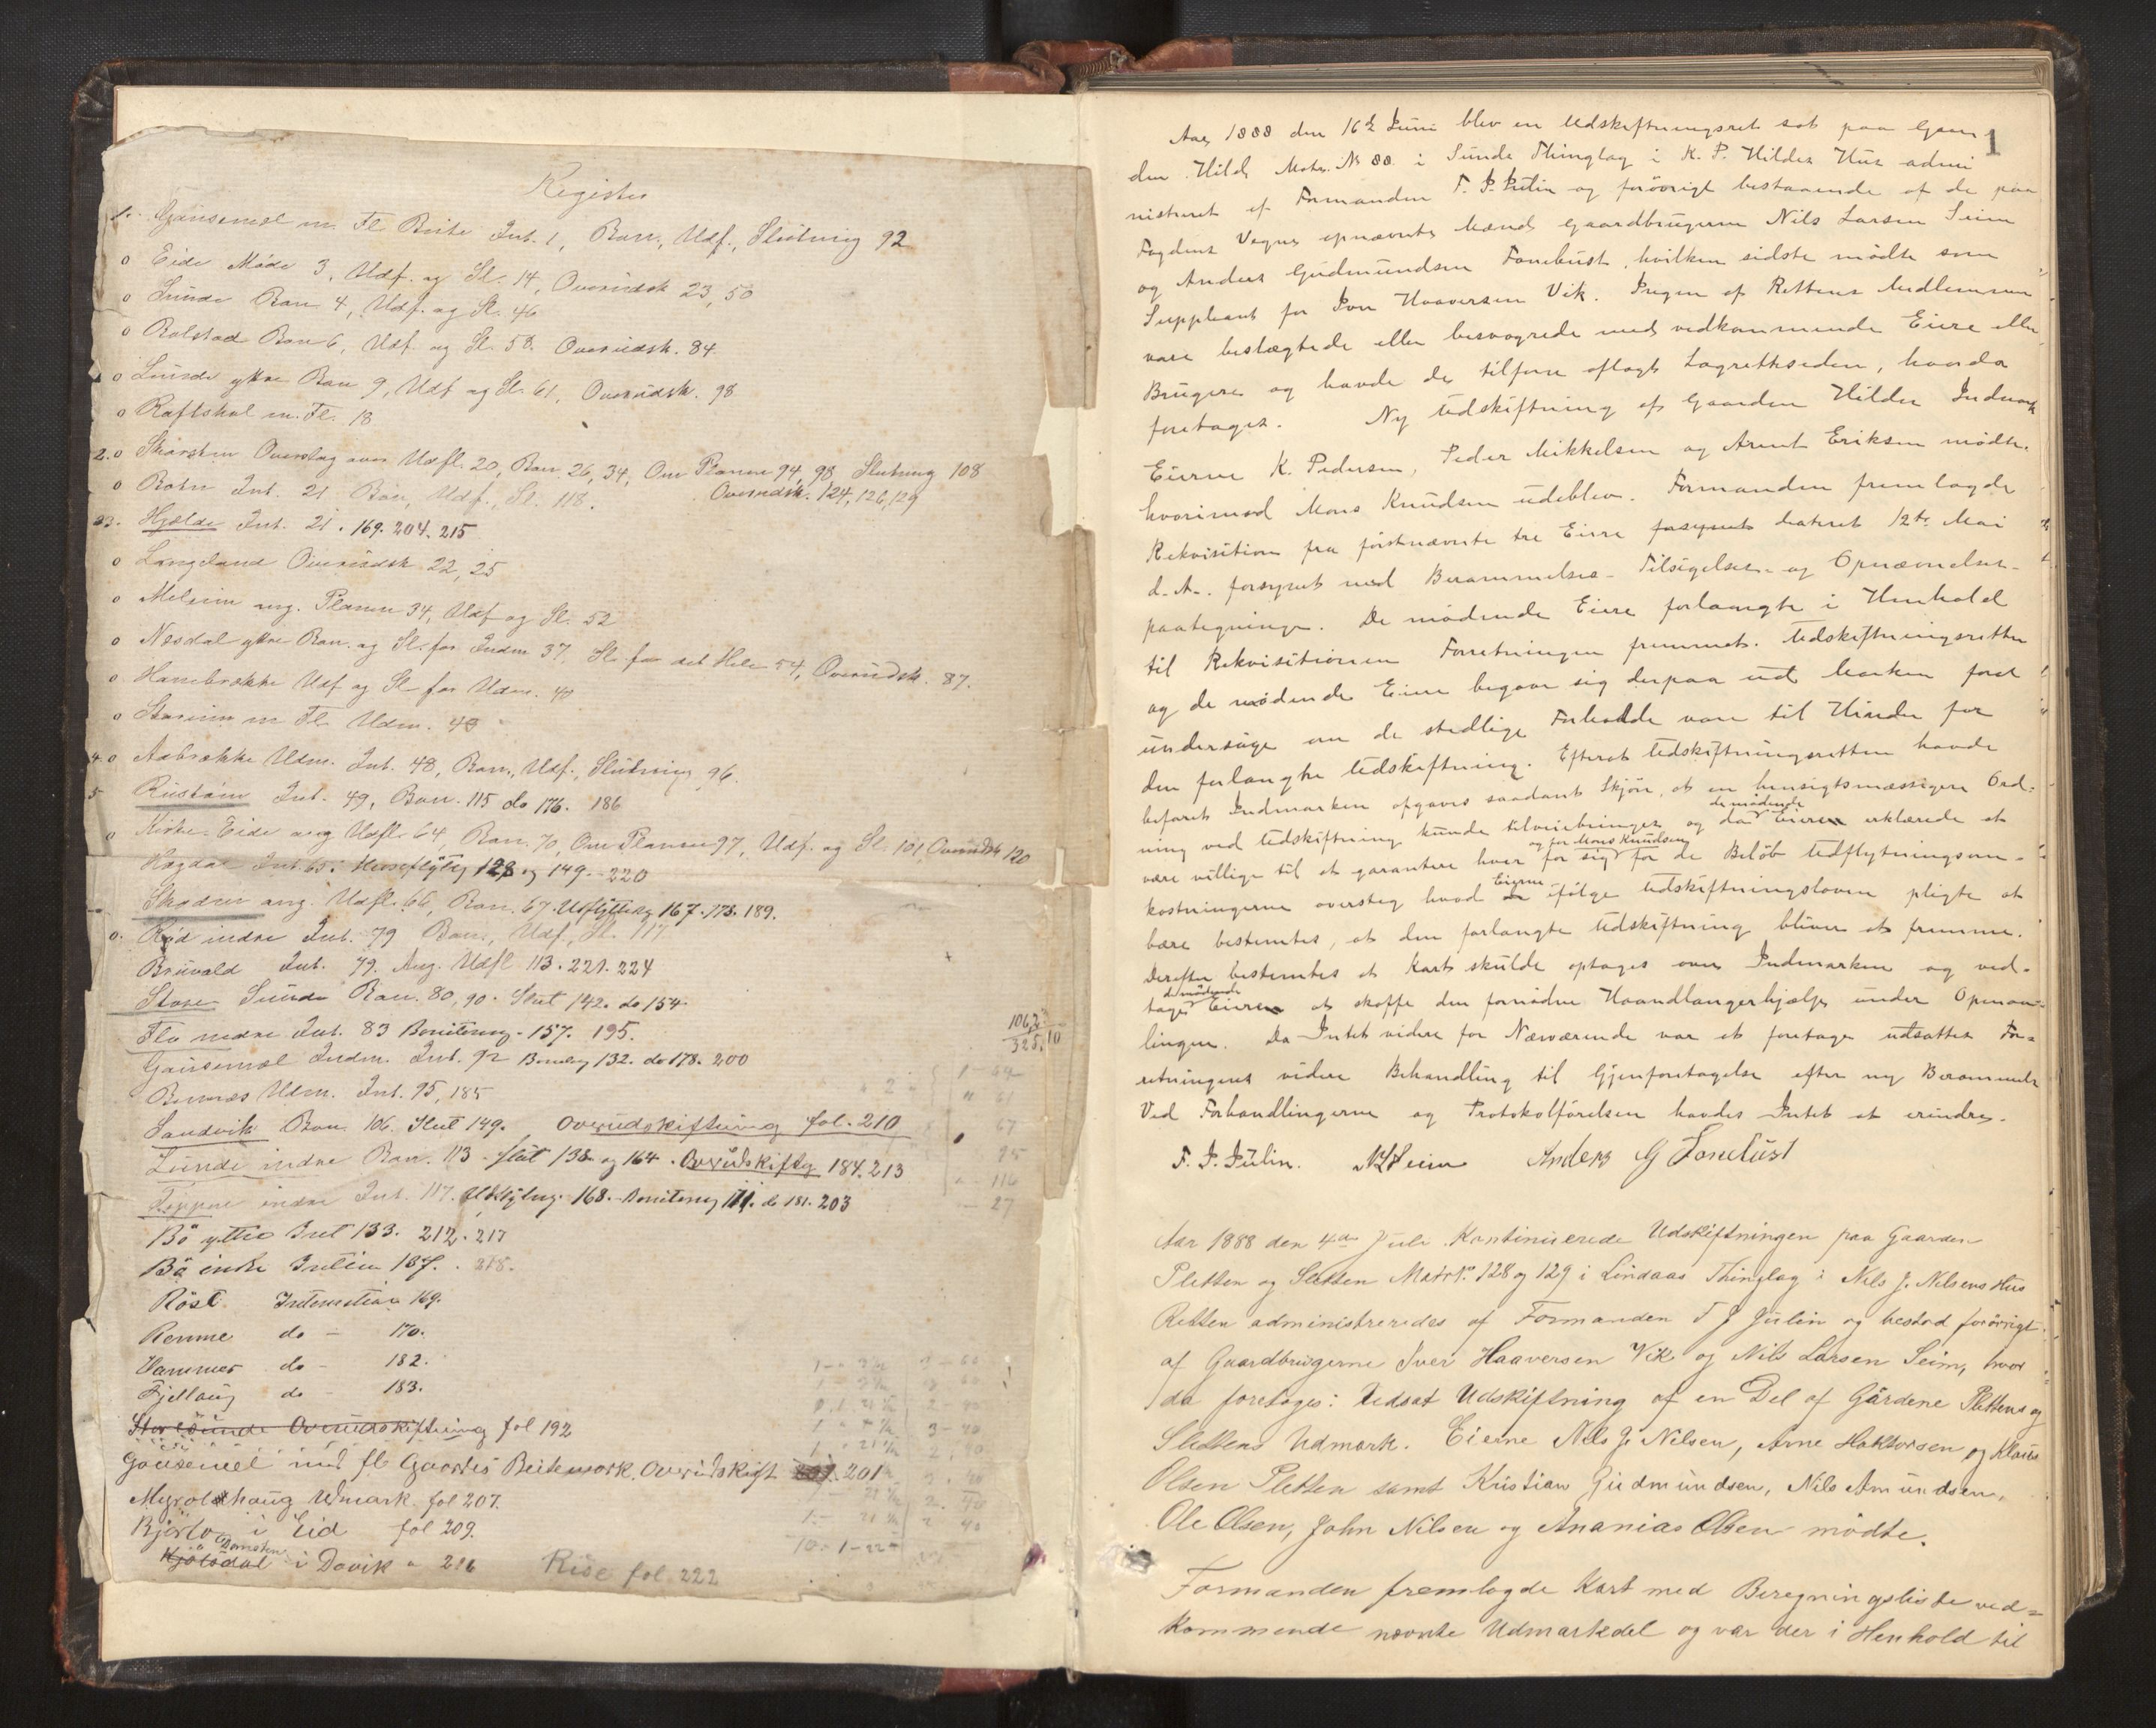 Register
1. Gausemel m. Fl. Beite Int. 1, Bon., Udf., Slutning 92
o Eide Möde 3, Udf. og Sl. 14, Overudsk 23, 50
o Sunde Bon 4, Udf. og Sl. 46
o Rolstad Bon 6, Udf. og Sl. 58. Overudsk. 84
o Lunde ytre Bon 9, Udf og Sl. 61, Overudsk. 98
o Raftskol m. Fl. 18
2. o Skarsten Overslag over Udfl. 20, Bon. 26, 34, Om Planen 94, 98 Slutning 108
Overudsk. 124, 126, 129
o Boten Int. 21 Bon, Udf., Sl. 118.
3. Hjelde Int. 21. 169. 204. 215
o Langeland Overudsk 22, 25
o Meleim ang. Planen 34, Udf og Sl. 52
o Nesdal ytre Bon. og Sl. for Indm 37, Sl. for det Hele 54, Overudsk. 87.
o Hanebrække Udf og Sl for Udm. 40
o Storeim m Fl. Udm. 40
4. o Aabrække Udm. Int. 48, Bon., Udf., Slutning 96.
5 Rustöin Int. 49, Bon. 115 do 176. 186
o Kirke-Eide ang Udfl. 64, Bon. 70, Om Planen 97, Udf. og Sl. 101, Overudsk 120
Hogdal Int. 65. Huseflytg 128 og 149. 220
Skadene ang. Udfl. 66, Bon. 67. Udflyttning 167. 178. 189.
o. Rød indre Int. 79 Bon., Udf., Sl. 117
Bruvold Int. 79. Ang. Udfl 113. 221. 224
Store Sunde Bon. 80, 90. Slut 142. do 154.
Flo nedre Int. 83 Bonitering. 157. 195.
Gausemel Indm. Int. 92 Bonitg 132. do 178. 200
Bennæs Udm. Int. 95, 185
Sandvik Bon. 106. Slut 149. Overudskiftning fol. 210
Lunde indre Bon. 113. Slut 138 og 164. Overudskiftg 184. 213
Töppen indre Int. 117. Udflytng. 168. Bonitering 171. do 181. 203
Bö ytre Int 133. 212. 217
Bö indre Intim 137. 218.
Röst. Intimation 169.
Remme do - 170.
Hammer do - 182.
Fjellaug do - 183.
Store Sunde Overudskiftning fol 192
Gausemel med fl. Gaardes Beitemark. Overudskift 201
Myroldhaug Udmark. fol 207.
Bjørlo i Eid fol 209.
Domsten
Kjölsdal i Davik " 216 Rise fol. 222
1
Aar 1888 den 16d Juni blev en Udskiftningsret sat paa Gaar
den Hilde Matr. N 88 i Sunde Thinglag i K. P. Hildes Hus admi
nistreret af Formanden F. J. Julin og forövrigt bestaaende af de paa
Fogdens Vegne opnævnte Mænd Gaardbrugerne Nils Larsen Seim
og Anders Gudmundsen Tonebust, hvilken sidste mödte som
Suppleant for Iver Haaversen Vik. Ingen af Rettens Medlemmer
vare beslægtede eller besvogrede med vedkommende Eiere eller
Brugere og havde de tilforn aflagt Lagrettseden, hvorda
foretoges. Ny Udskiftning af Gaarden Hildes Indmark
Eierne K. Pedersen, Peder Mikkelsen og Arent Eriksen mödte.
hvorimod Mons Knudsen udeblev. Formanden fremlagde
Rekvisition fra förstnævnte tre Eiere forsynet dateret 12te Mai
d. A. forsynet med Berammelses- Tilsigelses- og Opnævnelses-
paategninger. De mödende Eiere forlangte i Henhold
til Rekvisitionen Forretningen fremmet. Udskiftningsretten
og de mödende Eiere begave sig derpaa ud i Marken forat
undersöge om de stedlige Forholde vare til Hinder for
den forlangte Udskiftning. Efterat Udskiftningsretten havde
befaret Indmarken afgaves saadant Skjön, at en hensigtsmæssigere Ord-
ning ved Udskiftning kunde tilveiebringes og da de mödende Eiere erklærede at
være villige til at garantere hver for sig og for Mons Knudsen for de Beløb Udflytningsom-
kostningerne oversteg hvad Eierne ifölge Udskiftningsloven pligte at
bære bestemtes, at den forlangte Udskiftning bliver at fremme.
Derefter bestemtes at Kart skulde optages over Indmarken og ved-
toges de mödende Eiere at skaffe den fornödne Haandlangerhjælp under Opmaa-
lingen. Da Intet videre for Nærværende var at foretage udsattes For-
retningens videre Behandling til Gjenforetagelse efter ny Berammelse
Ved Forhandlingerne og Protokolförelsen havdes Intet at erindre.
F. J. Julin. N L Seim Anders G Tonebust
Aar 1888 den 4de Juli Kontinuerede Udskiftningen paa Gaarden
Pletten og Sletten Matr No. 128 og 129 i Lindaas Thinglag i Nils J. Nilsens Hus
Retten administreredes af Formanden F J Julin og bestod forövrigt
af Gaardbrugerne Iver Haaversen Vik og Nils Larsen Seim, hvor
da foretoges: Udsat Udskiftning af en Del af Gårdene Plettens og
Slettens Udmark. Eierne Nils J. Nilsen, Arne Haktorsen og Klaus
Olsen Pletten samt Kristian Gudmundsen, Nils Amundsen,
Ole Olsen, John Nilsen og Ananias Olsen mödte.
Formanden fremlagde Kart med Beregningsliste ved-
kommende nævnte Udmarkdel og var der i Henhold til